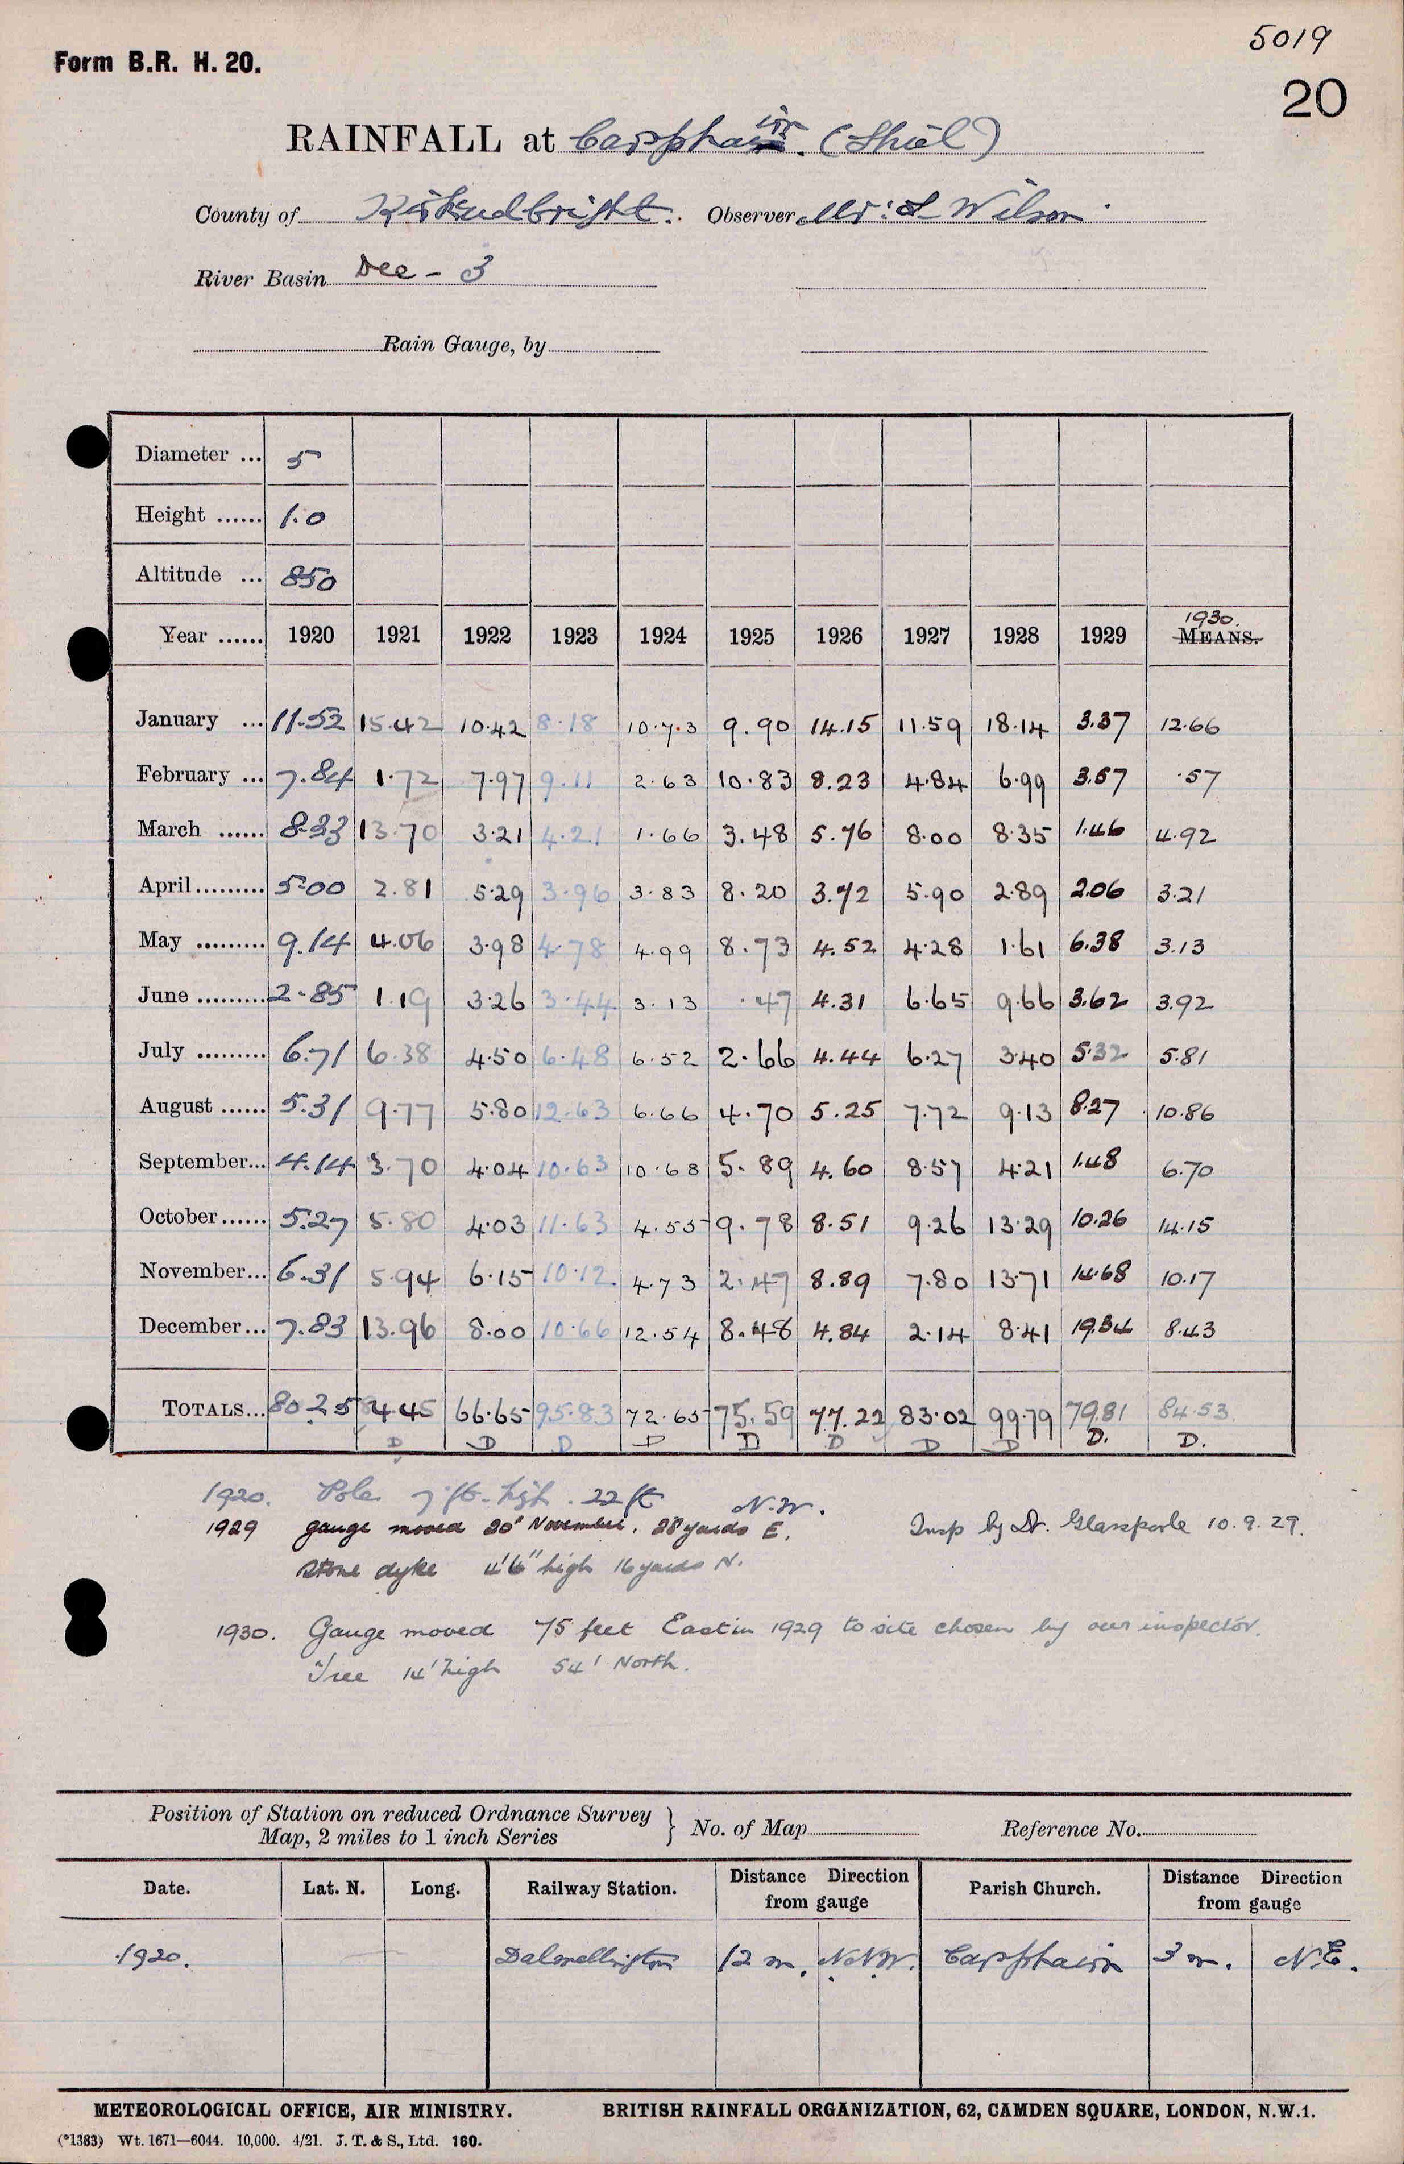 5019
Form B.R. H. 20.
20
RAINFALL at Carsphairn. (Shiel)
County of Kirkcudbright. Observer Mr: L Wilson
River Basin Dee - 3
Rain Gauge, by
Diameter ... 5
Height ...... 1.0
Altitude ... 850
1930.
Year ...... 1920 1921 1922 1923 1924 1925 1926 1927 1928 1929 MEANS.
January ... 11.52 15.42 10.42 8.18 10.73 9.90 14.15 11.59 18.14 3.37 12.66
February ... 7.84 1.72 7.97 9.11 2.63 10.83 8.23 4.84 6.99 3.57 .57
March ...... 8.33 13.70 3.21 4.21 1.66 3.48 5.76 8.00 8.35 1.46 4.92
April ......... 5.00 2.81 5.29 3.96 3.83 8.20 3.72 5.90 2.89 2.06 3.21
May ......... 9.14 4.06 3.98 4.78 4.99 8.73 4.52 4.28 1.61 6.38 3.13
June ......... 2.85 1.19 3.26 3.44 3.13 .47 4.31 6.65 9.66 3.62 3.92
July ......... 6.71 6.38 4.50 6.48 6.52 2.66 4.44 6.27 3.40 5.32 5.81
August ...... 5.31 9.77 5.80 12.63 6.66 4.70 5.25 7.72 9.13 8.27 10.86
September... 4.14 3.70 4.04 10.63 10.68 5.89 4.60 8.57 4.21 1.48 6.70
October...... 5.27 5.80 4.03 11.63 4.55 9.78 8.51 9.26 13.29 10.26 14.15
November... 6.31 5.94 6.15 10.12 4.73 2.47 8.89 7.80 13.71 14.68 10.17
December... 7.83 13.96 8.00 10.66 12.54 8.48 4.84 2.14 8.41 19.34 8.43
TOTALS... 80.25 84.45 66.65 95.83 72.65 75.59 77.22 83.02 99.79 79.81 84.53
D D D D D D D D D. D.
1920. Pole 7 ft. high. 22 ft N.W.
1929 gauge moved 20th November, 28 yards E. Insp by Dr. Glasspoole 10.9.29.
stone dyke 4'6" high 16 yards N.
1930. Gauge moved 75 feet East in 1929 to site chosen by our inspector.
Tree 14' high 54' North.
Position of Station on reduced Ordnance Survey
Map, 2 miles to 1 inch Series } No. of Map Reference No.
Date. Lat. N. Long. Railway Station. Distance Direction from gauge Parish Church. Distance Direction from gauge
1920. Dalmellington 12 m. N.N.W. Carsphairn 3 m. N.E.
METEOROLOGICAL OFFICE, AIR MINISTRY. BRITISH RAINFALL ORGANIZATION, 62, CAMDEN SQUARE, LONDON, N.W.1.
(*1383) Wt. 1671—6044. 10,000. 4/21. J. T. & S., Ltd. 160.